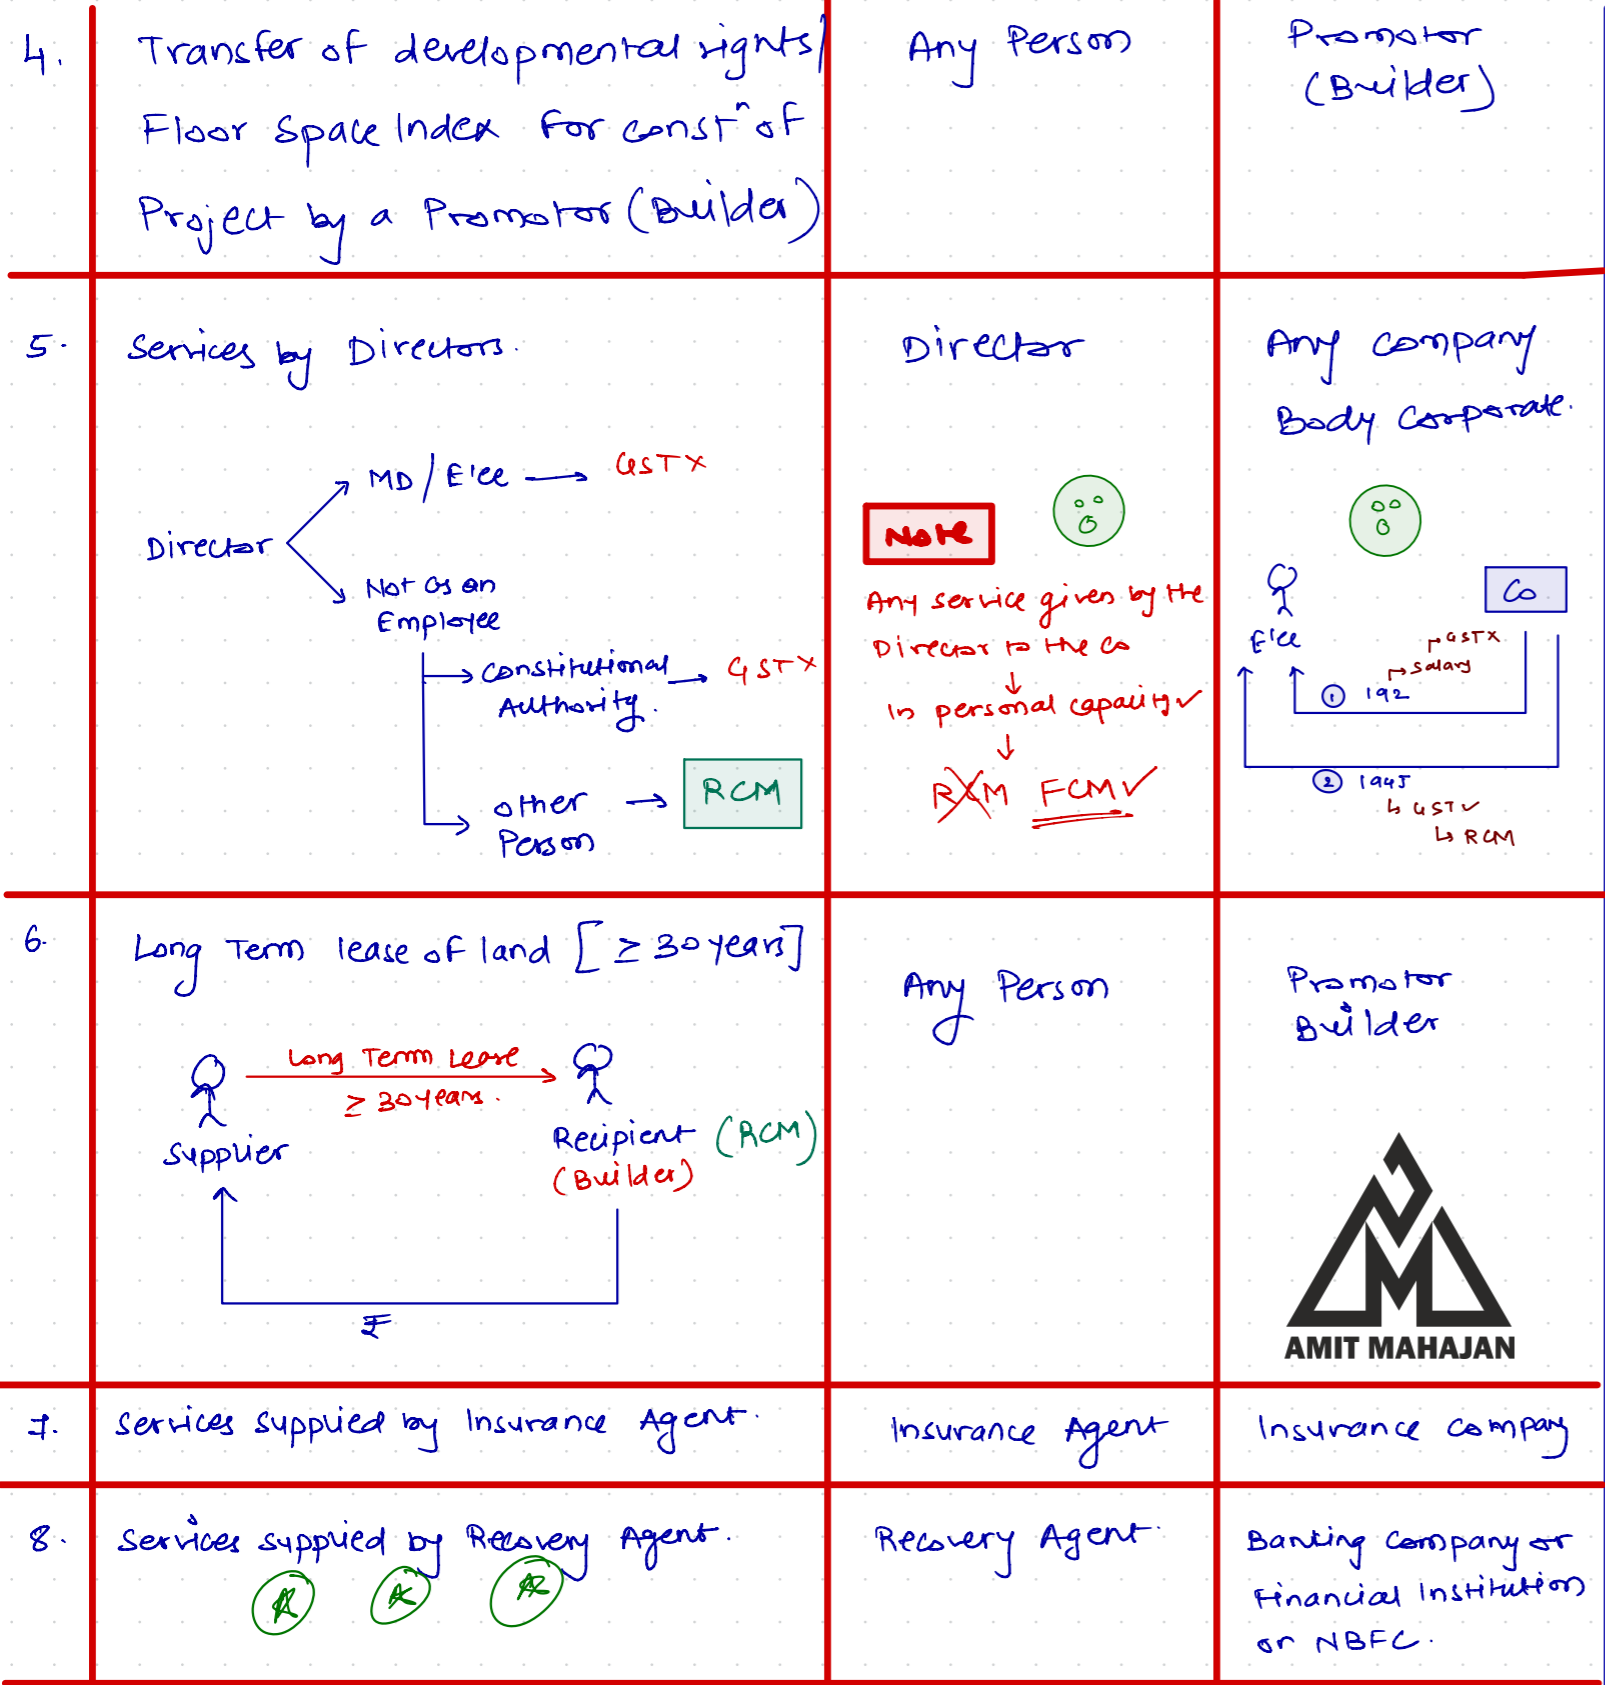 4.
Transfer of developmental rights/
Floor Space Index for constⁿ of
Project by a Promotor (Builder)
Any Person
Promotor
(Builder)
5.
Services by Directors.
Director
MD / E'ee → GST X
Not as an
Employee
Constitutional
Authority. → GST X
other
Person → RCM
Director
Note
Any service given by the
Director to the Co
↓
In personal capacity ✓
↓
RCM FCM ✓
Any Company
Body Corporate.
E'ee
Co
→ GST X
→ Salary
① 192
② 194J
↳ GST ✓
↳ RCM
6.
Long Term lease of land [ ≥ 30 years]
Long Term Lease
≥ 30 years.
Supplier
Recipient (RCM)
(Builder)
₹
Any Person
Promotor
Builder
AMIT MAHAJAN
7.
Services supplied by Insurance Agent.
Insurance Agent
Insurance Company
8.
Services supplied by Recovery Agent.
Recovery Agent.
Banking Company or
Financial Institution
or NBFC.